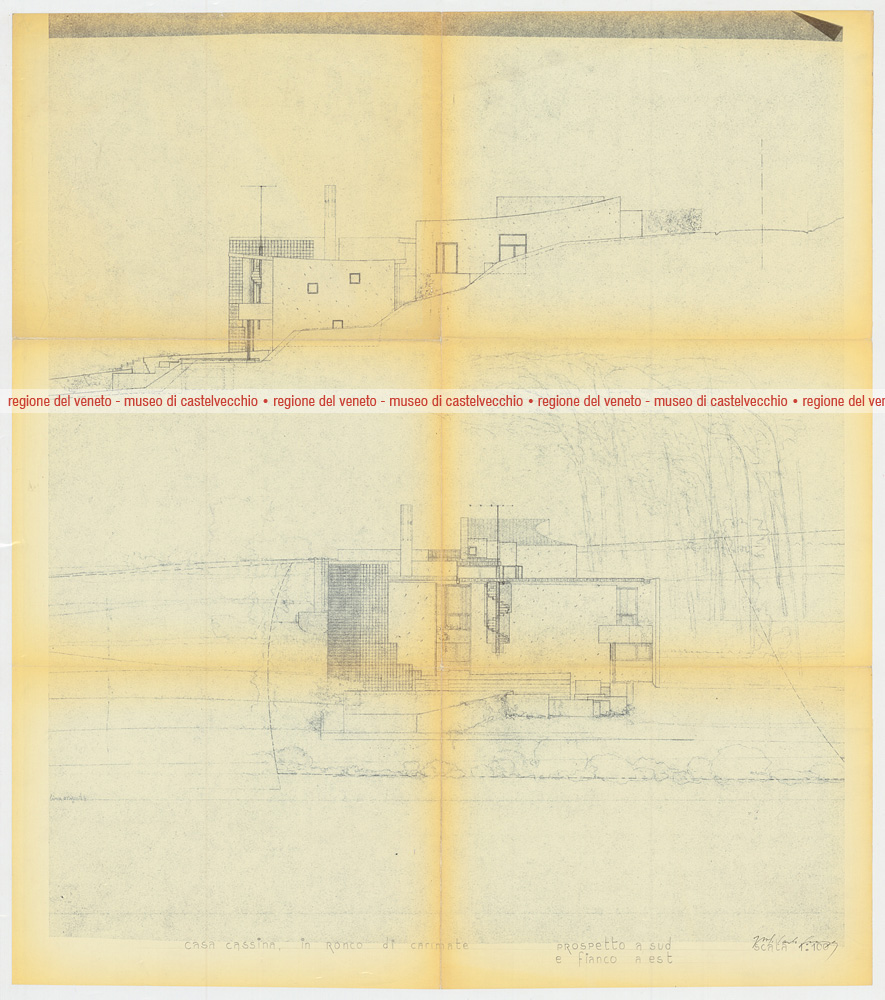 regione del veneto - museo di castelvecchio • regione del veneto - museo di castelvecchio • regione del veneto - museo di castelvecchio • regione del ver
casa cassina, in ronco di carimate
prospetto a sud
e fianco a est
scala 1:100